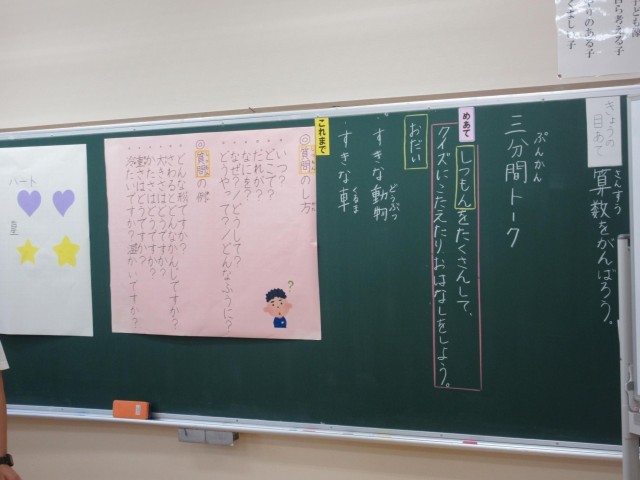 きょうの
目あて
さんすう
算数をがんばろう。
ぷんかん
三分間トーク
めあて
しつもんをたくさんして、
クイズにこたえたりおはなしをしよう。
おだい
どうぶつ
すきな動物
くるま
すきな車
これまで
◎質問のし方
・いつ?
・どこで?
・だれが?
・なにを?
・なぜ?/どうして?
・どうやって?/どんなふうに?
◎質問の例
・どんな形ですか?
・さわるとどんなかんじですか?
・大きさはどうですか?
・かたさはどうですか?
・動きますか?
・冷たいですか?温かいですか?
?
ハート
星